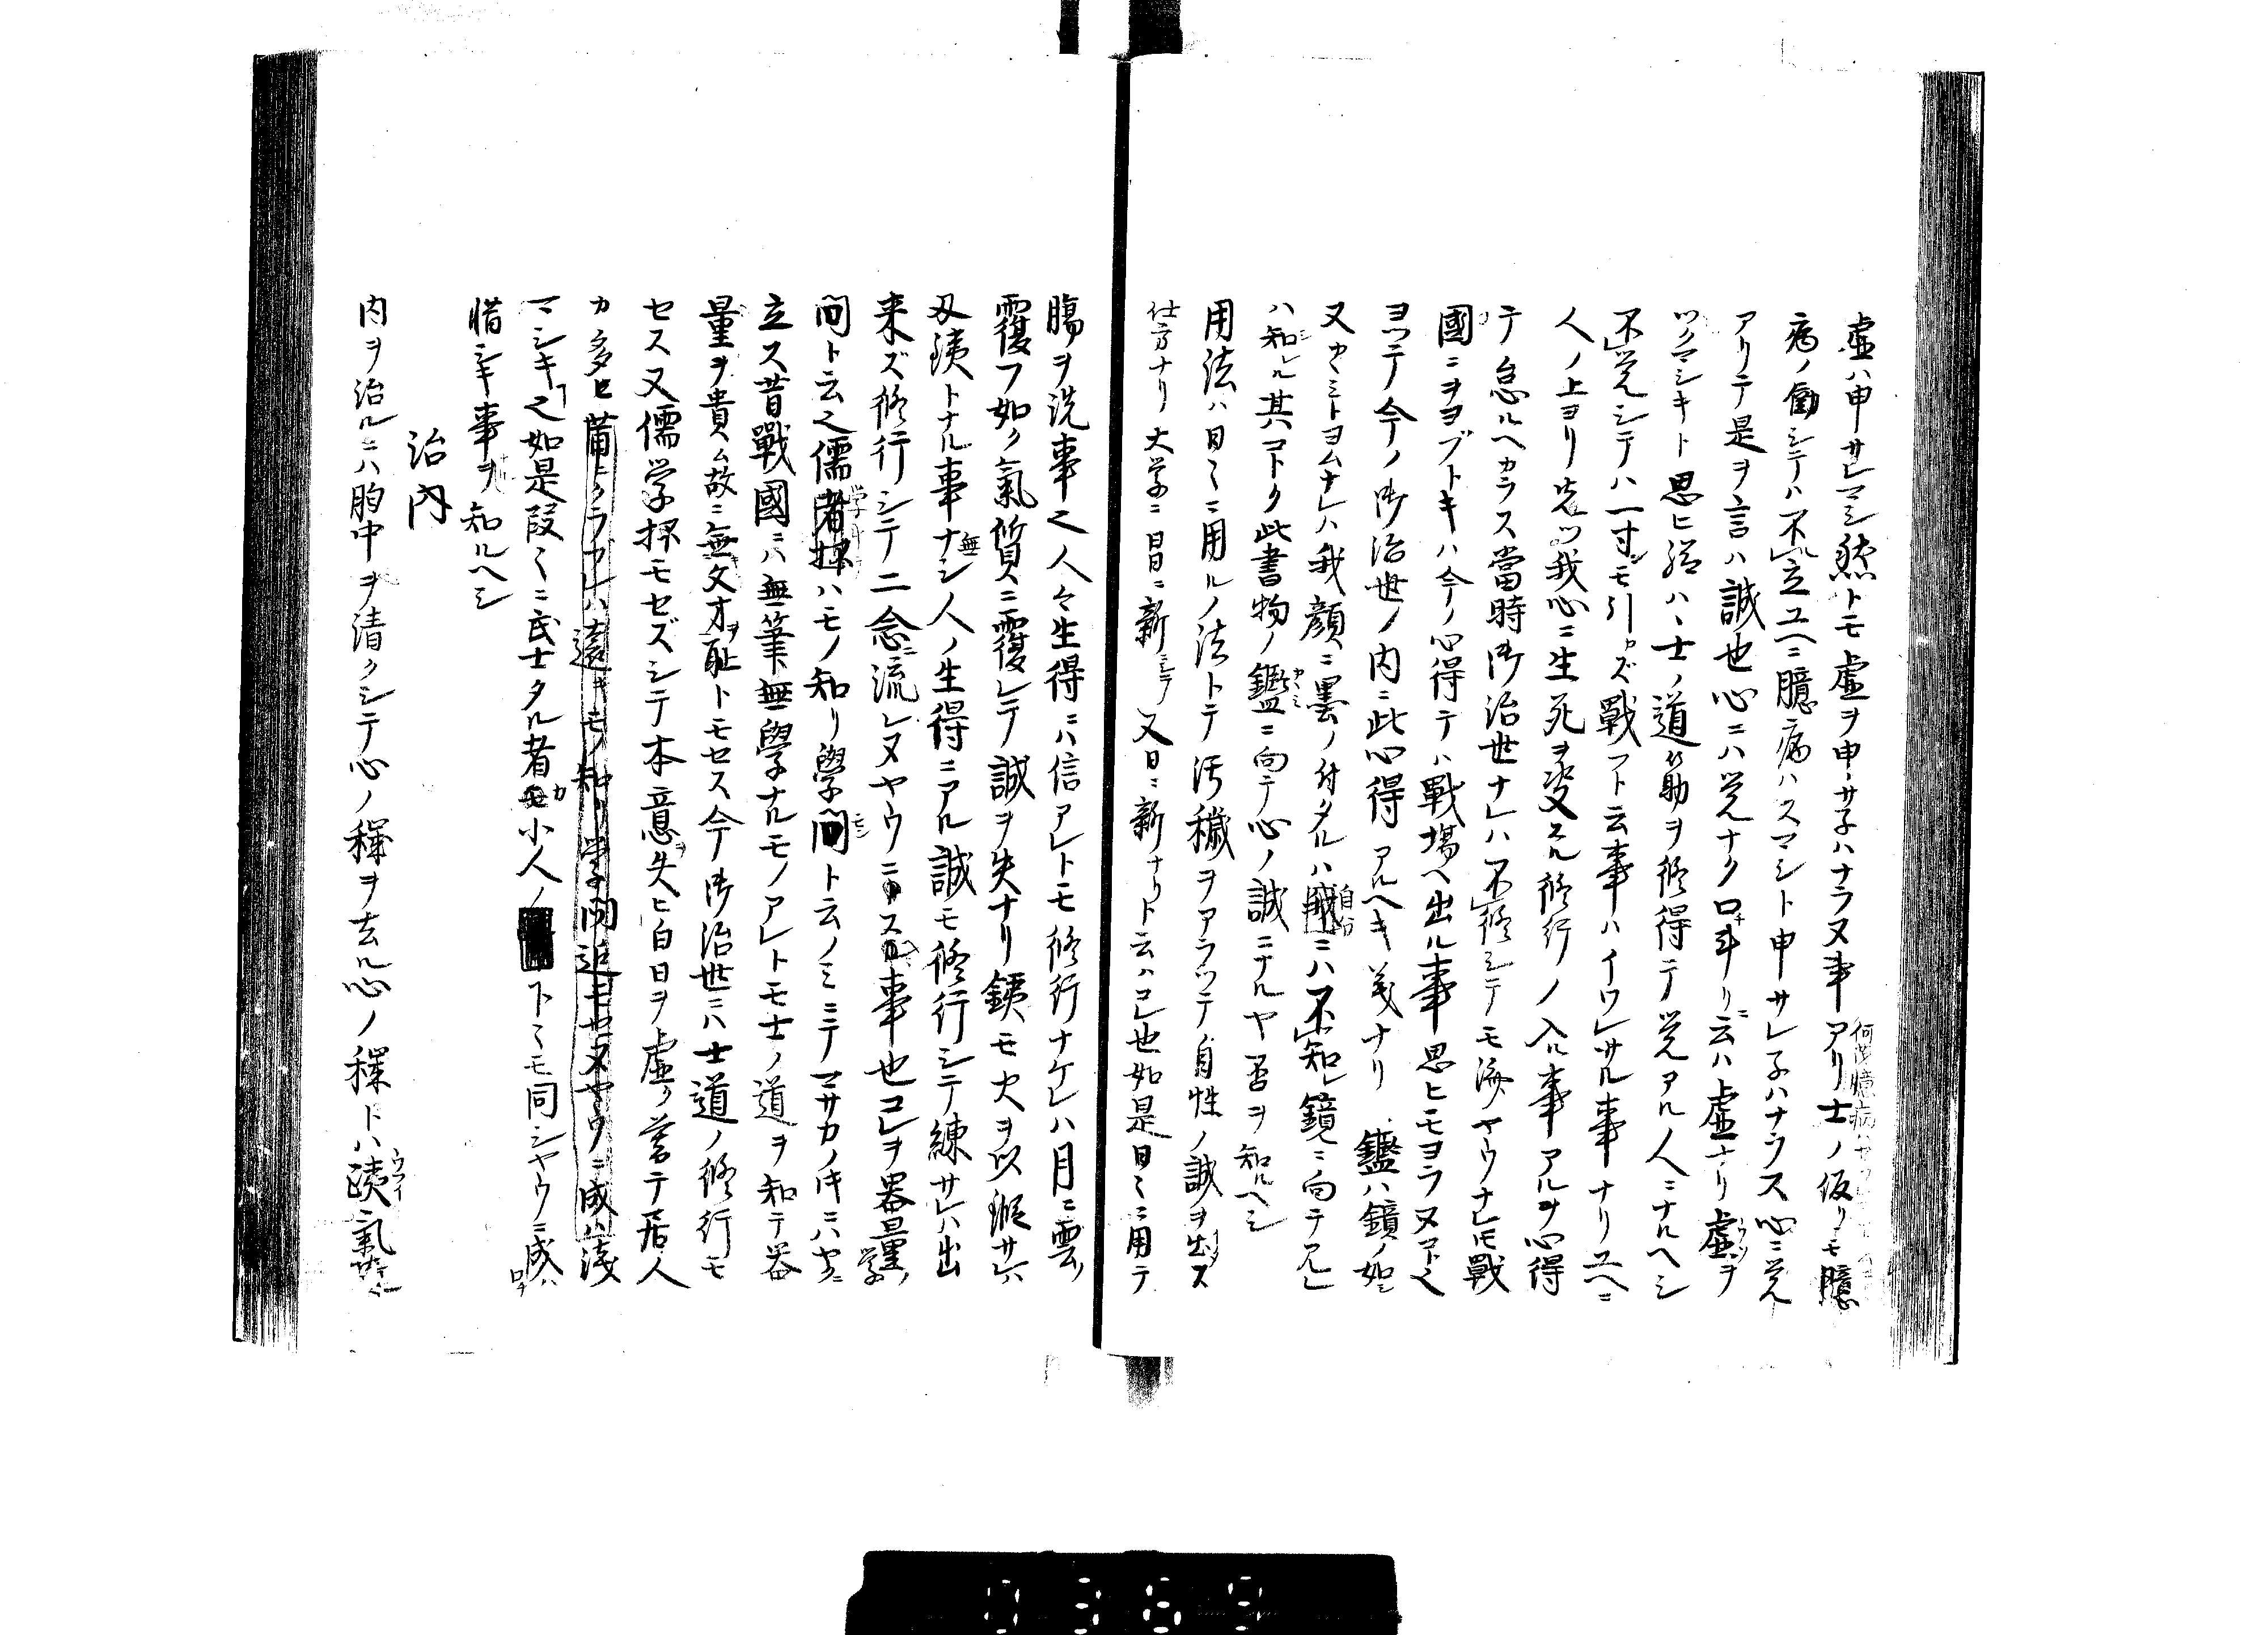 虚ハ申サレマシ然トモ虚ヲ申サ子ハナラヌ事アリ士ノ仮リモ臆
病ノ働シテハ不立ユヘニ臆病ハスマシト申サレ子ハナラス心ニ覚
アリテ是ヲ言ハ誠也心ニハ覚ナク口斗リニ云ハ虚ナリ虚ヲ
ツクマシキト思ヒ給ハヽ士ノ道筋ヲ修得テ覚アル人ニナルヘシ
不覚シテハ一寸モ引カズ戦フト云事ハイワレサル事ナリユヘニ
人ノ上ヨリ先ツ我心ニ生死ヲ変スル修行ノ入ル事アルヲ心得
テ怠ルヘカラス當時御治世ナレハ不修シテモ済ヤウナレモ戰
國ニヲヨブトキハ今ノ心得テハ戰場ヘ出ル事思ヒモヨラヌコト也
ヨツテ今ノ御治世ノ内ニ此心得アルヘキ義ナリ 鑑ハ鏡ノ如シ
又カヽミトヨムナレハ我顔ニ墨ノ付タルハ自分ニハ不知レ鏡ニ向テ見レ
ハ知レル其コトク此書物ノ鑑ニ向テ心ノ誠ニナルヤ否ヲ知ルヘシ
用法ハ日々ニ用ルノ法トテ汚穢ヲアラツテ自性ノ誠ヲ出ス
仕方ナリ大学ニ日日ニ新ニシテ又日ニ新ナリト云ハコレ也如是日々ニ用テ
腸ヲ洗事也人々生得ニハ信アレトモ修行ナケレハ月ニ雲ノ
覆フ如ク氣質ニ覆レテ誠ヲ失ナリ鉄モ火ヲ以
刄鉄トナル事ナシ人ノ生得ニアル誠モ修行シテ練サレハ出
来ズ修行シテ二念ニ流レヌヤウニスル事也コレヲ器量ノ学
問ト云也儒者抔ハモノ知リ學問ト云ノミニテマサカノトキニハヤクニ
立ス昔戰國ニハ無筆無學ナルモノアレトモ士ノ道ヲ知テ器
量ヲ貴ム故ニ無文才ヲ恥トモセス今御治世ニハ士道ノ修行モ
セス又儒学抔モセズシテ本意ヲ失ヒ白日ヲ虚ク暮テ居人
カ多ヒ ハ遠キモノ知リ学問 ヤウニ成 浅
マシキ也如是段々ニ武士タル者カ小人ノ下々モ同シヤウニ成ハ口
惜シキ事ヲ知ルヘシ
治内
内ヲ治ルニハ胸中ヲ清クシテ心ノ穢ヲ去ル心ノ穢トハ